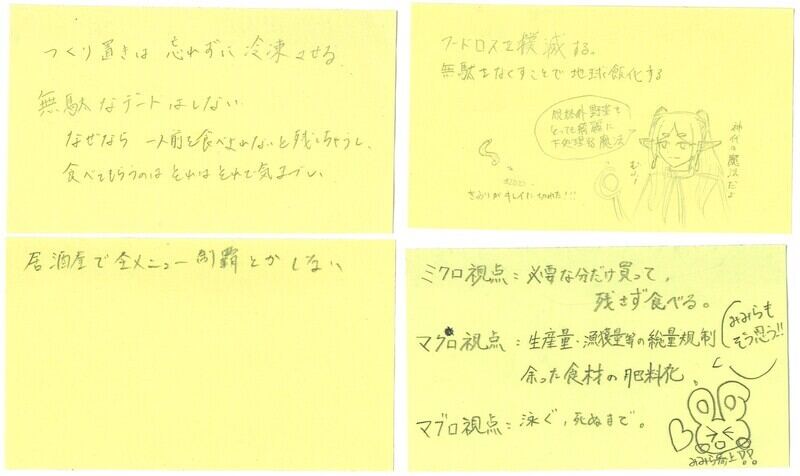 つくり置きは 忘れずに冷凍させる。
無駄なデートはしない
なぜなら 一人前を食べきれないと残しちゃうし、
食べてもらうのはそれはそれで気まずい
フードロスを撲滅する。
無駄をなくすことで地球飯化する
規格外野菜を
とっても綺麗に
下処理する魔法
神代の魔法だよ
むふー
きゅうりがキレイに切れた!!!
居酒屋で全メニュー制覇とかしない
ミクロ視点:必要な分だけ買って、
残さず食べる。
マクロ視点:生産量・漁獲量等の総量規制
余った食材の肥料化
マグロ視点:泳ぐ、死ぬまで。
みみらも
そう思う!!
みみら参上!!